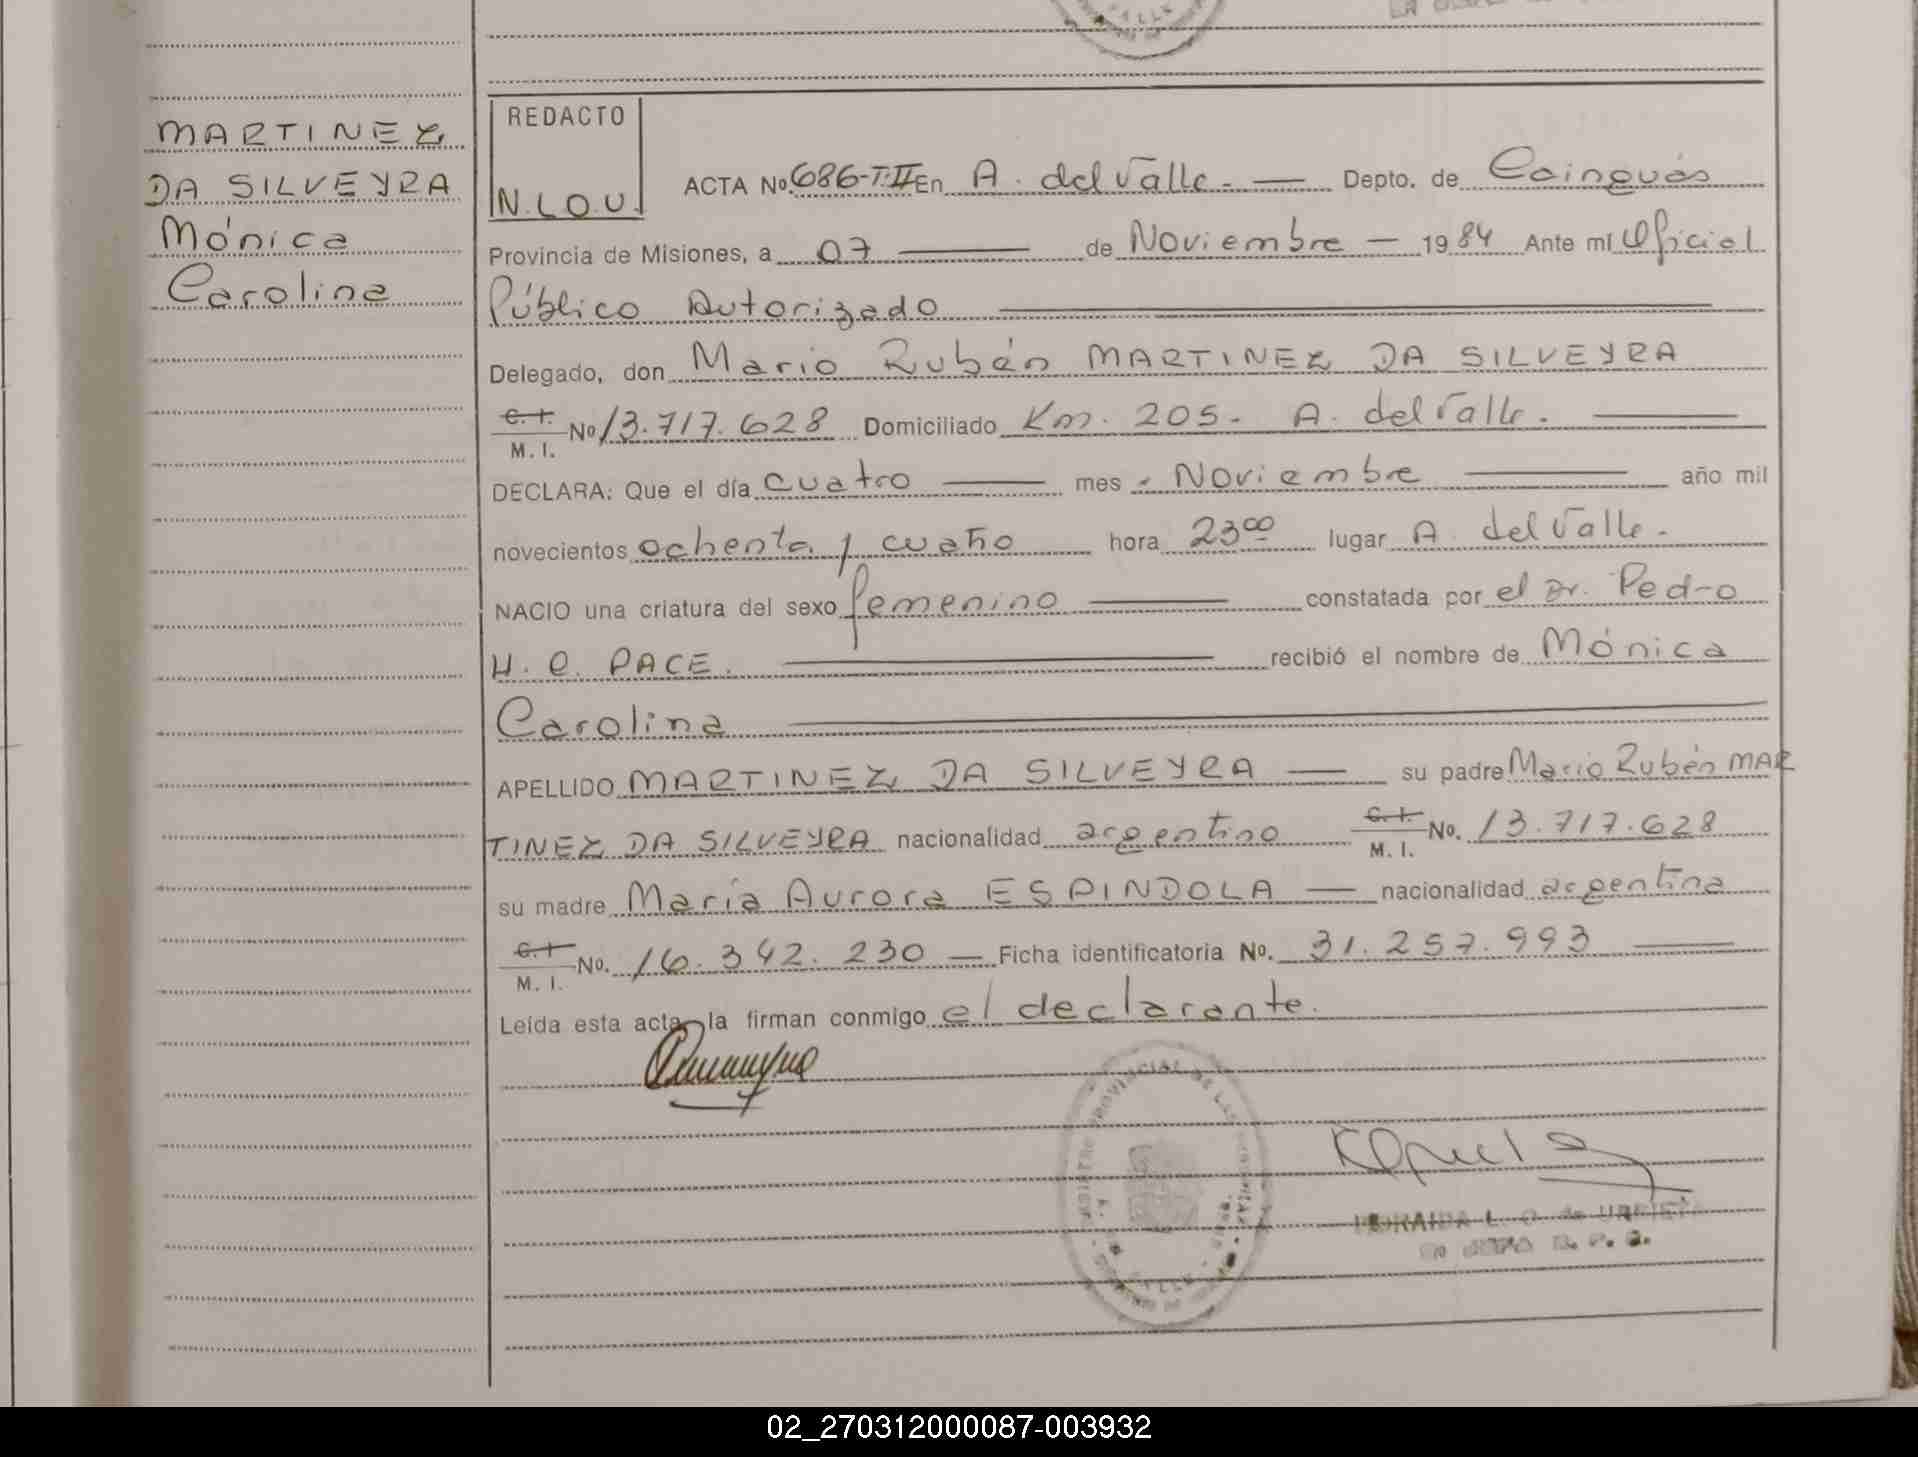 MARTINEZ
DA SILVEYRA
Mónica
Carolina
REDACTO
N.L.O.U.
ACTA No. 686-T.II En A. del Valle. — Depto. de Cainguás
Provincia de Misiones, a 07 — de Noviembre — 1984 Ante mí Oficial
Público Autorizado
Delegado, don Mario Rubén MARTINEZ DA SILVEYRA
C. I. M. I. No 13.717.628 Domiciliado Km. 205. A. del Valle.
DECLARA: Que el día cuatro — mes Noviembre — año mil
novecientos ochenta y cuatro hora 23 00 lugar A. del Valle.
NACIO una criatura del sexo femenino — constatada por el Dr. Pedro
H. C. PACE. — recibió el nombre de Mónica
Carolina
APELLIDO MARTINEZ DA SILVEYRA — su padre Mario Rubén MAR
TINEZ DA SILVEYRA nacionalidad argentino C. I. M. I. No. 13.717.628
su madre María Aurora ESPINDOLA — nacionalidad argentina
C. I. M. I. No. 16.342.230 — Ficha identificatoria No. 31.257.993
Leída esta acta, la firman conmigo el declarante.
REGISTRO PROVINCIAL DE LAS
VALLE
L. O. de URRIETA
02_270312000087-003932